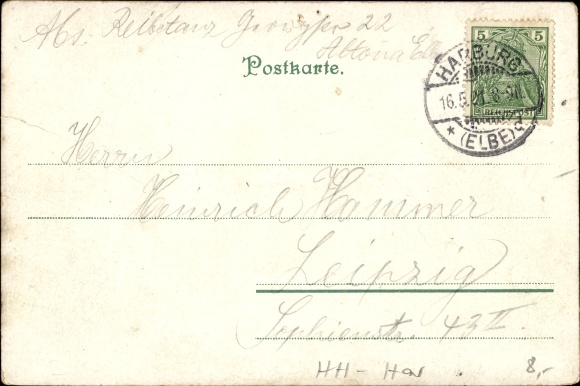 Abs. Reibetanz 22
Altona Elbe
Postkarte.
5 5
REICHSPOST
HARBURG
16.5. 8-9N
* (ELBE)
Herrn
Heinrich Hammer
Leipzig
Sophienstr. 43 II.
HH - Har 8,-